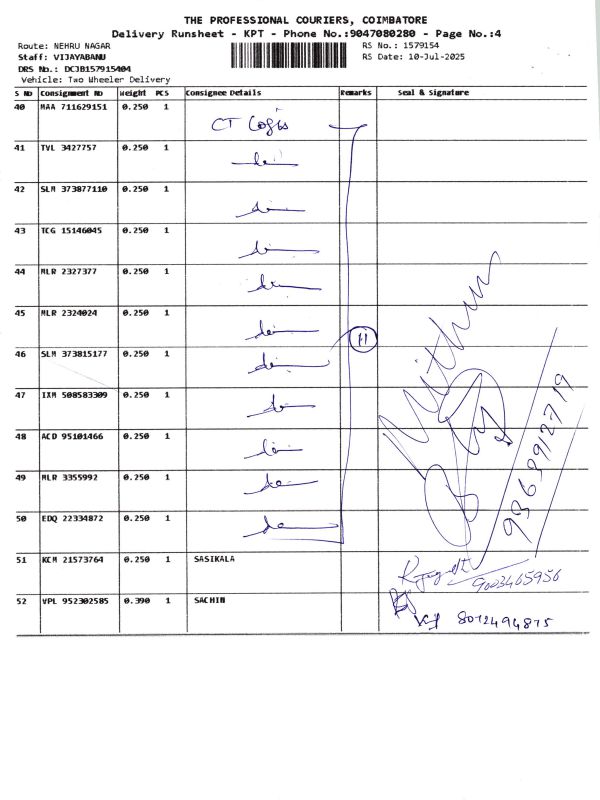 THE PROFESSIONAL COURIERS, COIMBATORE
Delivery Runsheet - KPT - Phone No.:9047080280 - Page No.:4
Route: NEHRU NAGAR
RS No.: 1579154
Staff: VIJAYABANU
RS Date: 10-Jul-2025
DRS No.: DCJB157915404
Vehicle: Two Wheeler Delivery
S NO Consignment NO Weight PCS Consignee Details Remarks Seal & Signature
40 MAA 711629151 0.250 1 CT
41 TVL 3427757 0.250 1
42 SLM 373877110 0.250 1
43 TCG 15146045 0.250 1
44 MLR 2327377 0.250 1
45 MLR 2324024 0.250 1
11
46 SLM 373815177 0.250 1
Mithun
47 IXM 508583309 0.250 1
48 ACD 95101466 0.250 1
49 MLR 3355992 0.250 1
50 EDQ 22334872 0.250 1
51 KCM 21573764 0.250 1 SASIKALA
9003465956
52 VPL 952302585 0.390 1 SACHIN
8012494875